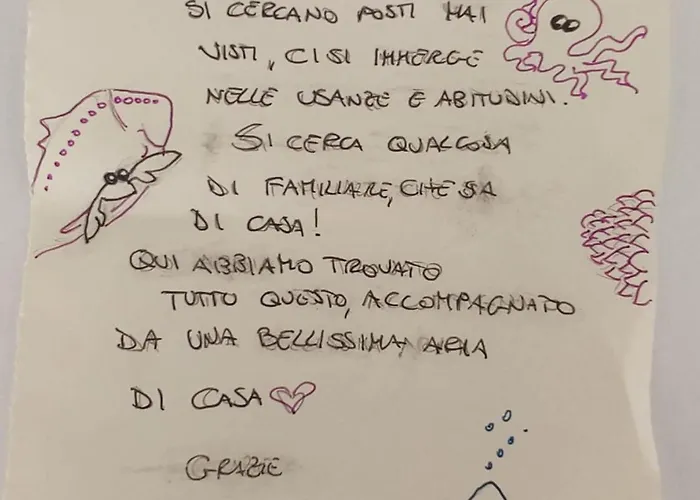 SI CERCANO POSTI MAI
VISTI, CI SI IMMERGE
NELLE USANZE E ABITUDINI.
SI CERCA QUALCOSA
DI FAMILIARE, CHE SA
DI CASA!
QUI ABBIAMO TROVATO
TUTTO QUESTO, ACCOMPAGNATO
DA UNA BELLISSIMA ARIA
DI CASA
GRAZIE